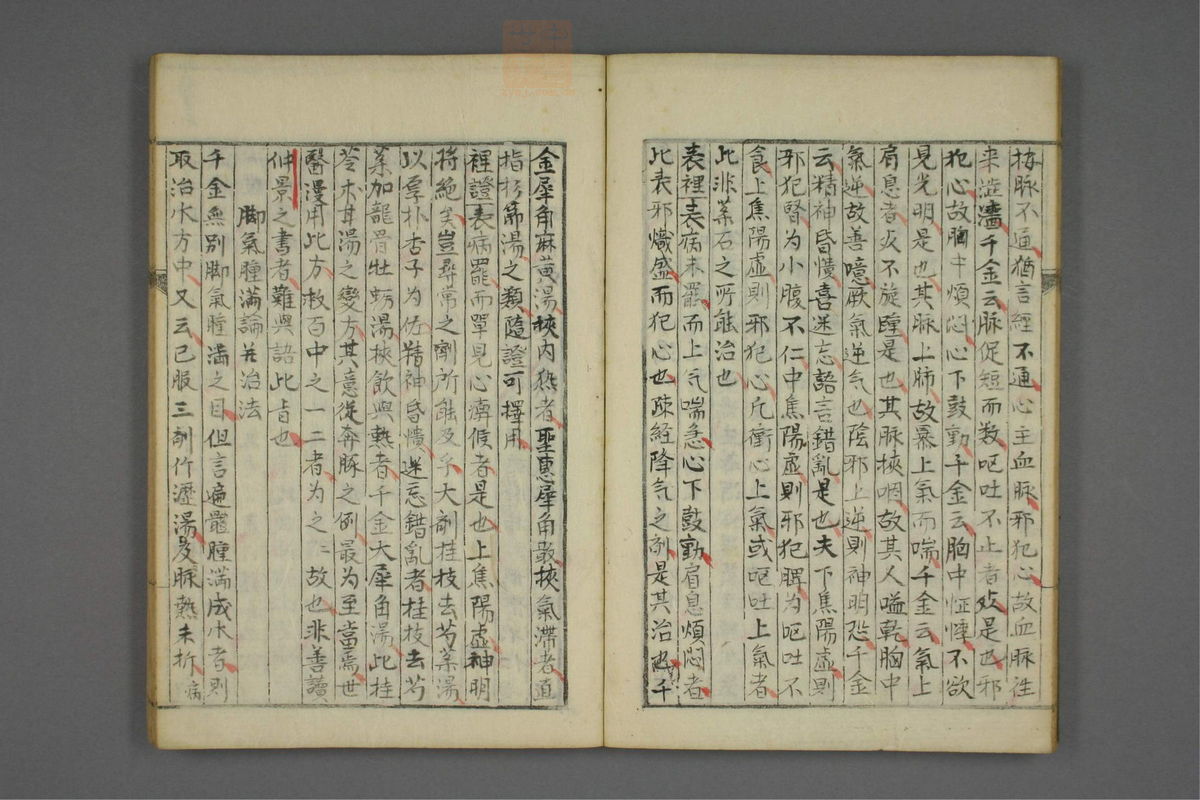 按脉不通猶言經不通心主血脉邪犯心故血脉淮
来澁濇千金云脉促短而数呕吐不止者死是也邪
犯心故胸中煩悶心下鼓動千金云胸中怔悸不欲
見光明是也其脉上肺故暴上氣而喘千金云氣上
肩息者死不旋踵是也其脉挾咽故其人嗌乾胸中
氣逆故善噫厥氣逆气也陰邪上逆則神明恐千金
云精神昏憒喜迷忘語言錯亂是也夫下焦陽虛則
邪犯腎為小腹不仁中焦陽虛則邪犯脾為呕吐不
食上焦陽虛則邪犯心凢衝心上氣或呕吐上氣者
此非菜石之所能治也
表裡表病未罷而上气喘急心下鼓動肩息煩悶者
此表邪熾盛而犯心也疎経降气之剤是其治也千
金犀角麻黄湯挾內熱者聖惠犀角散挾氣滯者直
指杉節湯之類隨證可擇用
裡證表病罷而單見心痹候者是也上焦陽虛神明
将絕矣豈尋常之劑所能及乎大剤桂枝去芍薬湯
以厚朴杏子為佐精神昏憒迷忘錯亂者桂枝去芍
薬加龍骨牡蛎湯挾飲與熱者千金大犀角湯此桂
苓朮甘湯之變方其意從奔豚之例最為至當焉世
醫漫用此方救百中之一二者為之〻故也非善讀
仲景之書者難與語此旨也
脚氣腫滿論并治法
千金無別脚氣腫滿之目但言遍體腫滿成水者則
取治水方中又云已服三剤竹瀝湯及脉熱未折病